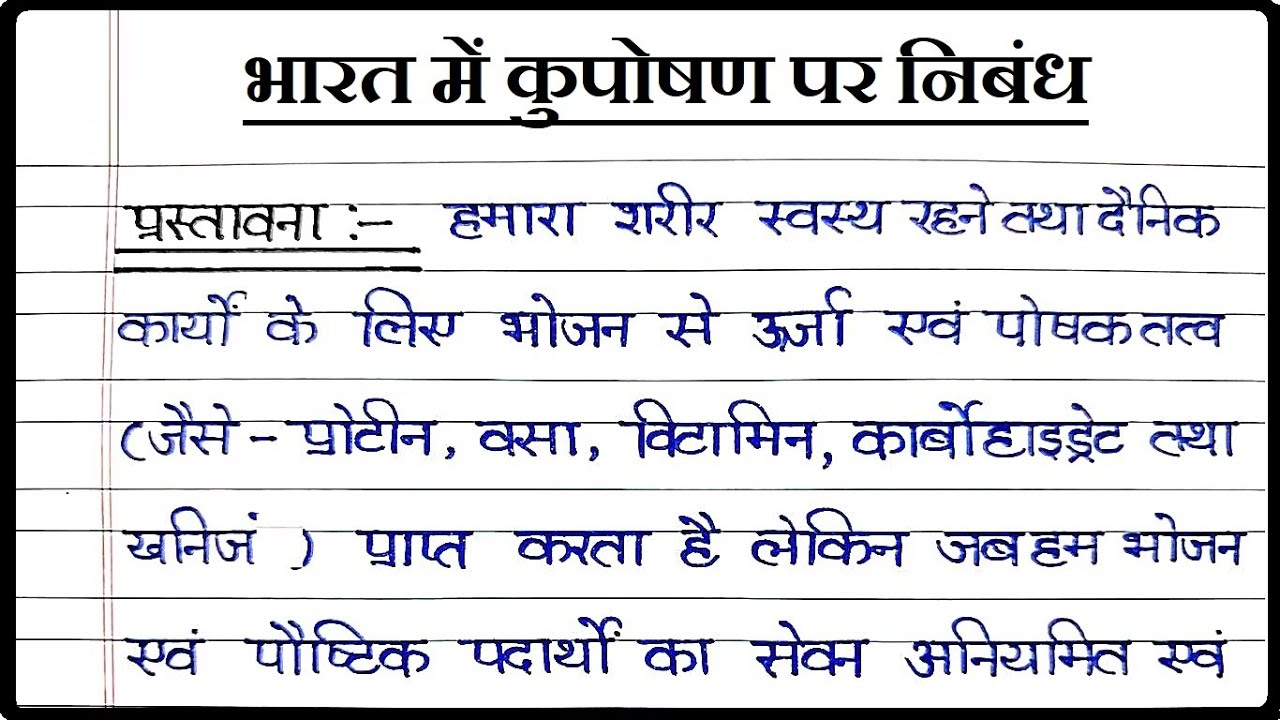 भारत में कुपोषण पर निबंध
प्रस्तावना :- हमारा शरीर स्वस्थ रहने तथा दैनिक
कार्यों के लिए भोजन से ऊर्जा एवं पोषक तत्व
(जैसे - प्रोटीन, वसा, विटामिन, कार्बोहाइड्रेट तथा
खनिजं ) प्राप्त करता है लेकिन जब हम भोजन
एवं पौष्टिक पदार्थों का सेवन अनियमित एवं